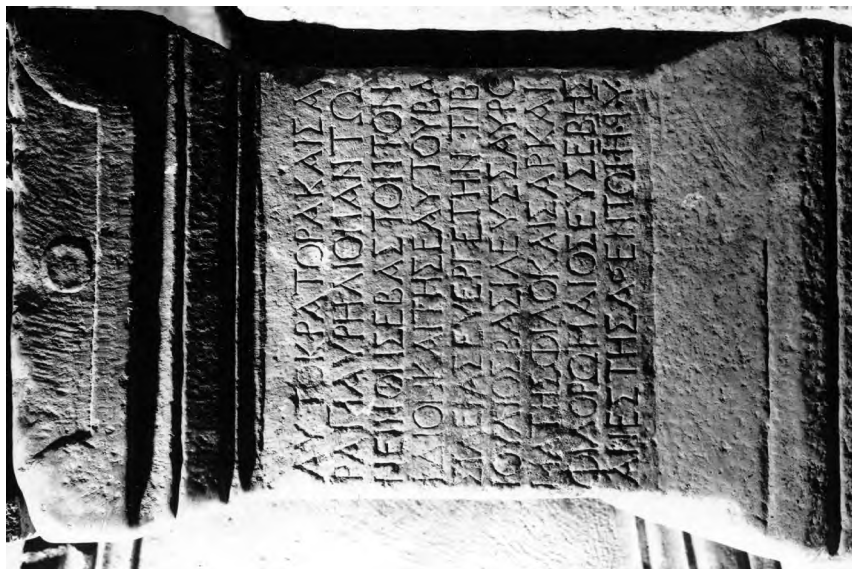 ΑΥΤΟΚΡΑΤΟΡΑΚΑΙΣΑ
ΡΑΓΙΑΥΡΗΛΙΟΝΑΝΤΩ
ΝΕΙΝΟΝΣΕΒΑΣΤΟΝΤΟΝ
ΙΔΙΟΝΚΑΙΤΗΣΕΑΥΤΟΥΒΑ
ΣΙΛΕΙΑΣΕΥΕΡΓΕΤΗΝΤΙΒ
ΙΟΥΛΙΟΣΒΑΣΙΛΕΥΣΣΑΥΡΟ
ΜΑΤΗΣΦΙΛΟΚΑΙΣΑΡΚΑΙ
ΦΙΛΟΡΩΜΑΙΟΣΕΥΣΕΒΗΣ
ΑΝΕΣΤΗΣΑ ΕΝΤΩ